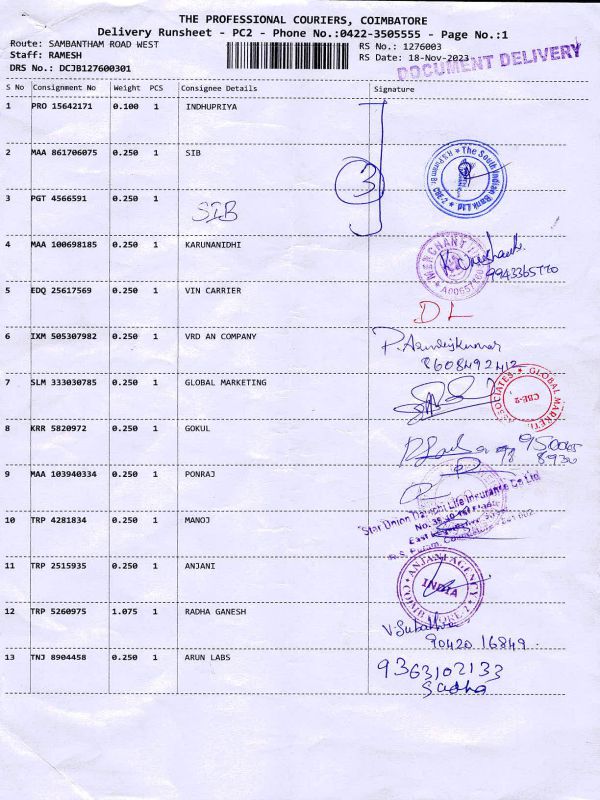 THE PROFESSIONAL COURIERS, COIMBATORE
Delivery Runsheet - PC2 - Phone No.:0422-3505555 - Page No.:1
Route: SAMBANTHAM ROAD WEST RS No.: 1276003
Staff: RAMESH RS Date: 18-Nov-2023
DRS No.: DCJB127600301 DOCUMENT DELIVERY
S No Consignment No Weight PCS Consignee Details Signature
1 PRO 15642171 0.100 1 INDHUPRIYA
2 MAA 861706075 0.250 1 SIB
The South Indian Bank Ltd
3
3 PGT 4566591 0.250 1 SIB
4 MAA 100698185 0.250 1 KARUNANIDHI
MERCHANT
9943365770
5 EDQ 25617569 0.250 1 VIN CARRIER
DL
6 IXM 505307982 0.250 1 VRD AN COMPANY
8608492412
7 SLM 333030785 0.250 1 GLOBAL MARKETING
GLOBAL MARKETI ASSOCIATES CBE-2
8 KRR 5820972 0.250 1 GOKUL
9 MAA 103940334 0.250 1 PONRAJ
Star Union Dai-ichi Life Insurance Co Ltd
10 TRP 4281834 0.250 1 MANOJ
11 TRP 2515935 0.250 1 ANJANI
ANJANI AGENCY INDIA COIMBATORE-2
12 TRP 5260975 1.075 1 RADHA GANESH
90420 16849
13 TNJ 8904458 0.250 1 ARUN LABS
9363102133
Sadha